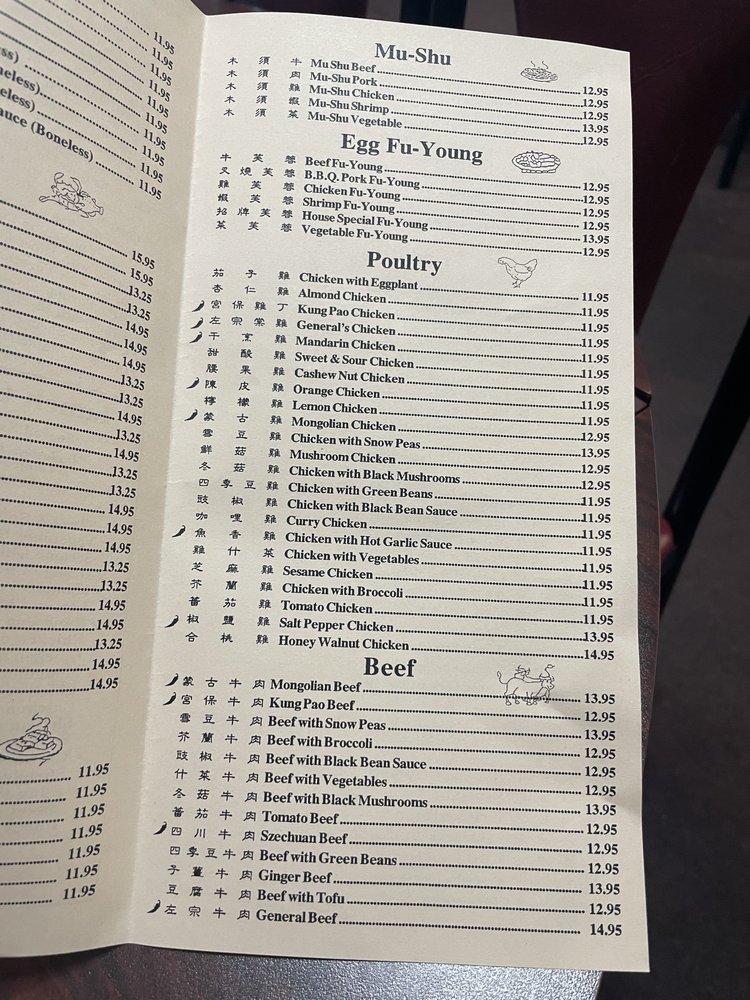 11.95
11.95
11.95
11.95
11.95
11.95
11.95
11.95
sauce (Boneless) 11.95
15.95
15.95
13.25
13.25
14.95
14.95
14.95
13.25
13.25
14.95
13.25
14.95
13.25
13.25
14.95
14.95
14.95
13.25
13.25
14.95
14.95
13.25
14.95
14.95
11.95
11.95
11.95
11.95
11.95
11.95
11.95
Mu-Shu
木須牛 Mu Shu Beef 12.95
木須肉 Mu-Shu Pork 12.95
木須雞 Mu-Shu Chicken 12.95
木須蝦 Mu-Shu Shrimp 13.95
木須菜 Mu-Shu Vegetable 12.95
Egg Fu-Young
牛芙蓉 Beef Fu-Young 12.95
叉燒芙蓉 B.B.Q. Pork Fu-Young 12.95
雞芙蓉 Chicken Fu-Young 12.95
蝦芙蓉 Shrimp Fu-Young 12.95
招牌芙蓉 House Special Fu-Young 13.95
菜芙蓉 Vegetable Fu-Young 12.95
Poultry
茄子雞 Chicken with Eggplant 11.95
杏仁雞 Almond Chicken 11.95
宮保雞丁 Kung Pao Chicken 11.95
左宗棠雞 General's Chicken 11.95
干烹雞 Mandarin Chicken 11.95
甜酸雞 Sweet & Sour Chicken 11.95
腰果雞 Cashew Nut Chicken 11.95
陳皮雞 Orange Chicken 11.95
檸檬雞 Lemon Chicken 11.95
蒙古雞 Mongolian Chicken 12.95
雪豆雞 Chicken with Snow Peas 13.95
鮮菇雞 Mushroom Chicken 12.95
冬菇雞 Chicken with Black Mushrooms 12.95
四季豆雞 Chicken with Green Beans 11.95
豉椒雞 Chicken with Black Bean Sauce 11.95
咖哩雞 Curry Chicken 11.95
魚香雞 Chicken with Hot Garlic Sauce 11.95
雞什菜 Chicken with Vegetables 11.95
芝麻雞 Sesame Chicken 11.95
芥蘭雞 Chicken with Broccoli 11.95
蕃茄雞 Tomato Chicken 11.95
椒鹽雞 Salt Pepper Chicken 13.95
合桃雞 Honey Walnut Chicken 14.95
Beef
蒙古牛肉 Mongolian Beef 13.95
宮保牛肉 Kung Pao Beef 12.95
雪豆牛肉 Beef with Snow Peas 13.95
芥蘭牛肉 Beef with Broccoli 12.95
豉椒牛肉 Beef with Black Bean Sauce 12.95
什菜牛肉 Beef with Vegetables 12.95
冬菇牛肉 Beef with Black Mushrooms 13.95
蕃茄牛肉 Tomato Beef 12.95
四川牛肉 Szechuan Beef 12.95
四季豆牛肉 Beef with Green Beans 12.95
子薑牛肉 Ginger Beef 13.95
豆腐牛肉 Beef with Tofu 12.95
左宗牛肉 General Beef 14.95